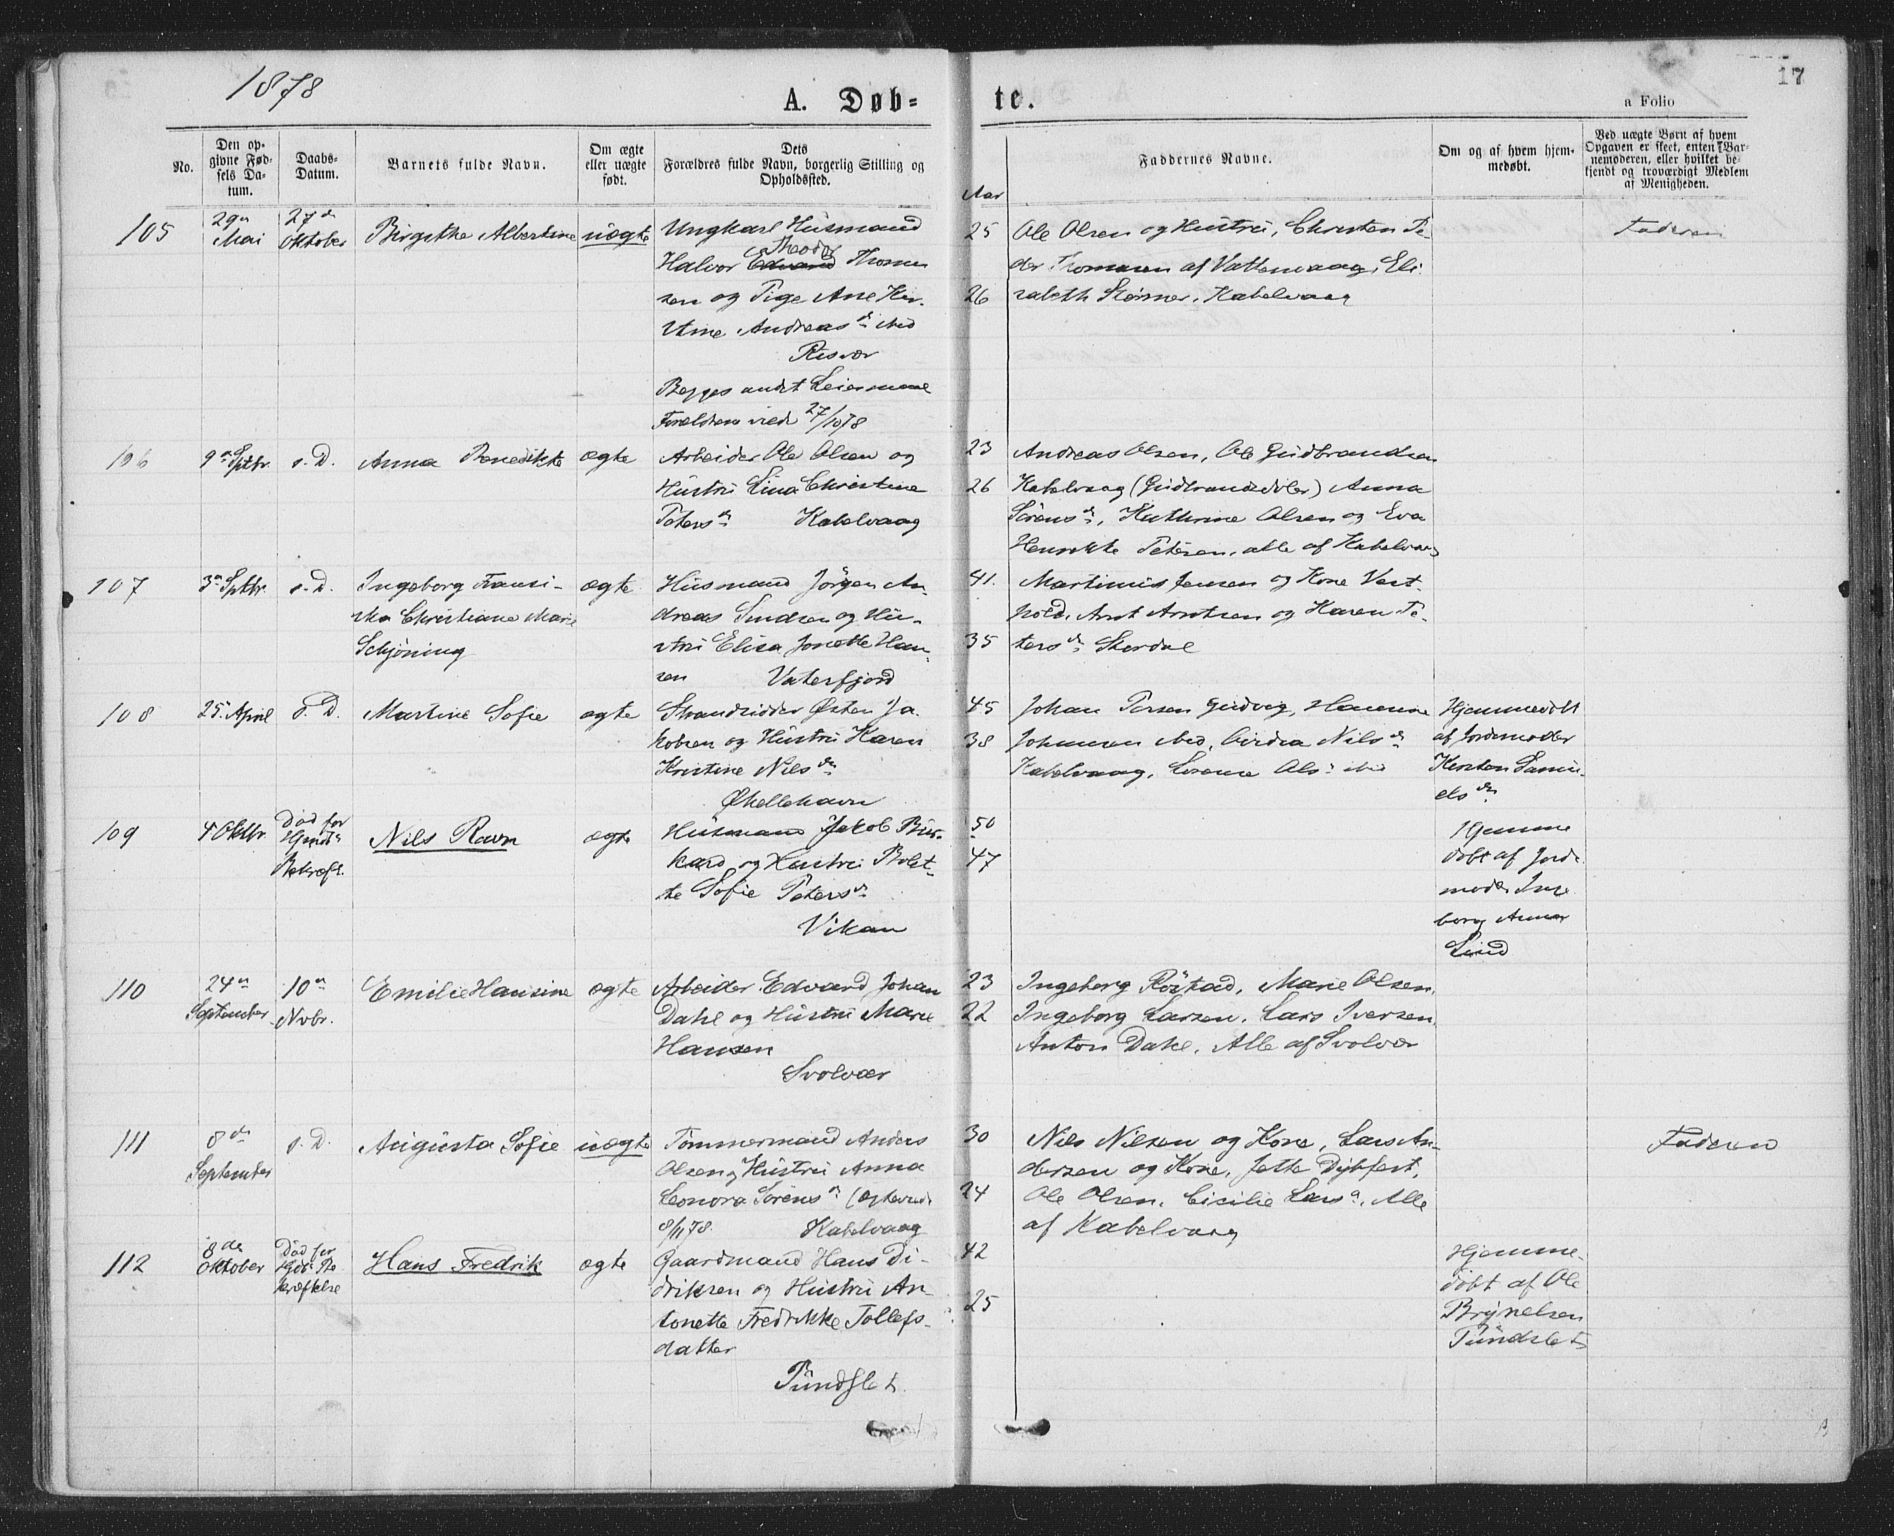 1878
A. Døb-
te.
17
a Folio
No.
Den op-
givne Fød-
sels Da-
tum.
Daabs-
Datum.
Barnets fulde Navn.
Om ægte
eller uægte
født.
Dets
Forældres fulde Navn, borgerlig Stilling og
Opholdssted.
Aar
Faddernes Navne.
Om og af hvem hjem-
medøbt.
Ved uægte Børn af hvem
Opgaven er skeet, enten Bar-
nemoderen, eller hvilket be-
kjendt og troværdigt Medlem
af Menigheden.
105
29de
Mai
27de
Oktober
Birgithe Albertine
uægte
Ungkarl Husmand
Theodor
Halvor Edvard Thomes-
sen og Pige Ane Ker-
stine Andreasdr ibid
Risvær
Begges andet Leiermaal
Forældrene viede 27/10 78
25
26
Ole Olsen og Hustru, Christen Pe-
der Thomesen af Vattenvaag, Eli-
sabeth Störmer, Kabelvaag
Faderen
106
9de Sptbr.
s. D.
Anna Benedikte
ægte
Arbeider Ole Olsen og
Hustru Lina Christine
Petersdr Kabelvaag
23
26
Andreas Olsen, Ole Gudbrandsen
Kabelvaag (Gudbrandsdøler) Anna
Sörensdr, Kathrine Olsen og Eva
Henrikke Petersen, alle af Kabelvaag
107
3de Sptbr.
s. D.
Ingeborg Fransi-
ska Christiane Marie
Schjöning
ægte
Husmand Jörgen An-
dreas Simdsen og Hu-
stru Elisa Jonette Han-
sen Vaterfjord
41.
35
Martinus Jensen og Kone Vest-
pold, Arnt Arntsen og Karen Pe-
tersdr Skordal
108
25. April
s. D.
Martine Sofie
ægte
Strandsidder Østen Ja-
kobsen og Hustru Karen
Kristine Nilsdr
Ørellehavn
45
38
Johan Persen Gudvig, Hanna
Johansen ibid, Nilsdr
Kabelvaag, Lorense Olsdr ibid
Hjemmedøbt
af Jordemoder
Kirsten Samu-
elsdr
109
4 Oktbr.
Død før
Hjmds
Bekræft.
Nils Ravn
ægte
Husmand Jakob Bur-
kard og Hustru Bolet-
te Sofie Petersdr
Vikan
50
47
Hjemme
døbt af Jorde
moder Inge
borg Anna
Lund
110
24de
September
10de
Nvbr.
Emilie Hansine
ægte
Arbeider Edvard Johan
Dahl og Hustru Marie
Hansen
Svolvær
23
22
Ingeborg Röstad, Marie Olsen,
Ingeborg Larsen, Lars Iversen,
Anton Dahl, Alle af Svolvær
111
8de
September
s. D.
Augusta Sofie
uægte
Tömmermand Anders
Olsen og Hustru Anna
Leonora Sörensdr (ægteviede
8/11 78. Kabelvaag
30
24
Nils Nilsen og Kone, Lars An-
dersen og Kone, Jette Dybfest,
Ole Olsen, Cicilie Larsdr, Alle
af Kabelvaag
Faderen
112
8de
Oktober
Død før
Hjdb. Be-
kræftelse
Hans Fredrik
ægte
Gaardmand Hans Di-
driksen og Hustru An-
tonette Fredrikke Tollefs-
datter
Pundslet
42
25
Hjemme-
døbt af Ole
Brynelsen
Pundslet